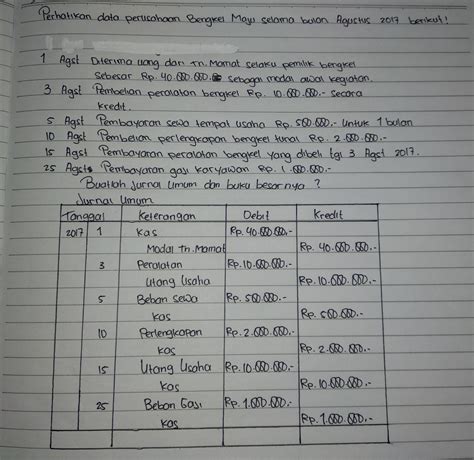 Perhatikan data perusahaan Bengkel Maju selama bulan Agustus 2017 berikut!
1 Agst Diterima uang dari Tn. Mamat selaku pemilik bengkel
sebesar Rp. 40.000.000,- sebagai modal awal kegiatan.
3 Agst Pembelian peralatan bengkel Rp. 10.000.000.- secara
kredit.
5 Agst Pembayaran sewa tempat usaha Rp. 500.000.- untuk 1 bulan
10 Agst Pembelian perlengkapan bengkel tunai Rp. 2.000.000.-
15 Agst Pembayaran peralatan bengkel yang dibeli tgl 3 Agst 2017.
25 Agst Pembayaran gaji karyawan Rp. 1.000.000.-
Buatlah jurnal umum dan buku besarnya ?
Jurnal Umum
Tanggal Keterangan Debit Kredit
2017 1 Kas Rp. 40.000.000.-
Modal Tn. Mamat Rp. 40.000.000.-
3 Peralatan Rp. 10.000.000.-
Utang Usaha Rp. 10.000.000.-
5 Beban Sewa Rp. 500.000.-
Kas Rp. 500.000.-
10 Perlengkapan Rp. 2.000.000.-
Kas Rp. 2.000.000.-
15 Utang Usaha Rp. 10.000.000.-
Kas Rp. 10.000.000.-
25 Beban Gaji Rp. 1.000.000.-
Kas Rp. 1.000.000.-